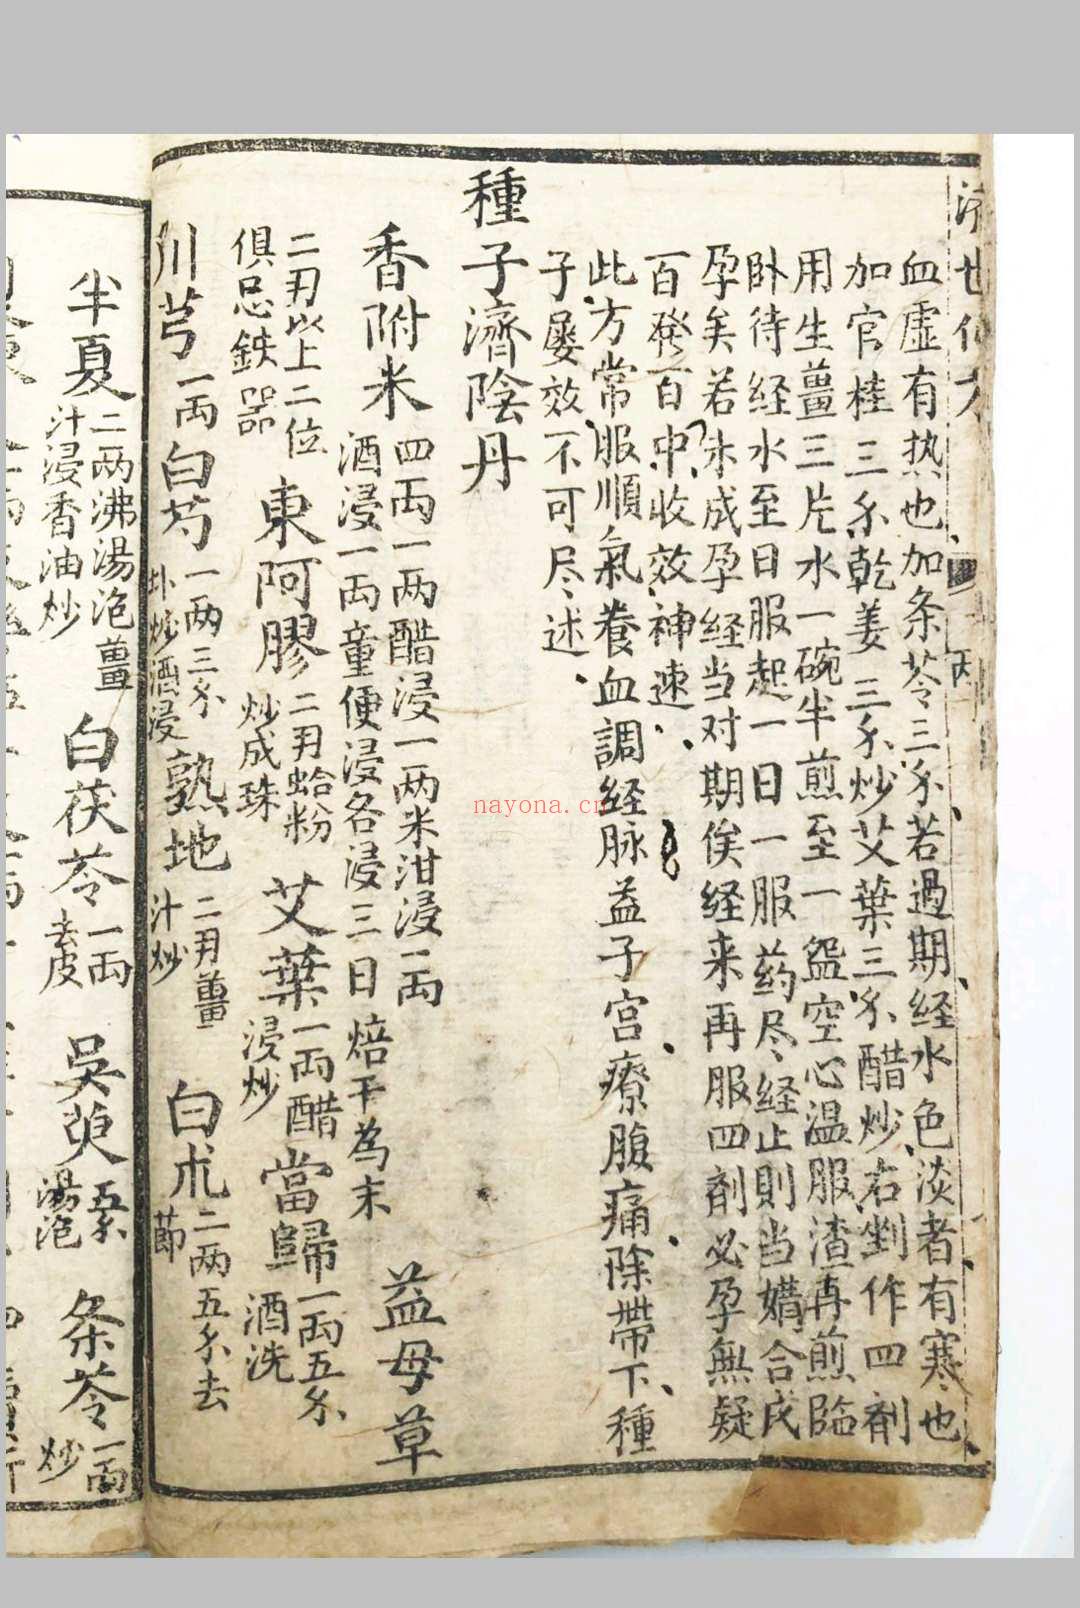 血虛有热也加条苓三分若過期経水色淡者有寒也
加官桂三分乾姜三分炒艾葉三分醋炒右剉作四剤
用生薑三片水一碗半煎至一盌空心温服渣再煎臨
卧待経水至日服起一日一服药尽経止則当媾合成
孕矣若未成孕経当对期俟経来再服四剤必孕無疑
百発百中收效神速
此方常服順氣養血調経脉益子宫療腹痛除帶下種
子屡效不可尽述
種子濟陰丹
香附米 四両一两醋浸一两米泔浸一両
酒浸一両童便浸各浸三日焙干為末 益母草
二刄以上二位
俱忌鉄器 東阿膠 二刄蛤粉
炒成珠 艾葉 一両醋
浸炒 當歸 一両五分
酒洗
川芎 一両 白芍 一两三分
酒浸 熟地 二刄薑
汁炒 白朮 二两五分去
莭
半夏 二两沸湯泡薑
汁浸香油炒 白茯苓 一両
去皮 吳萸
湯泡 条苓 一両
炒
nayona.cn